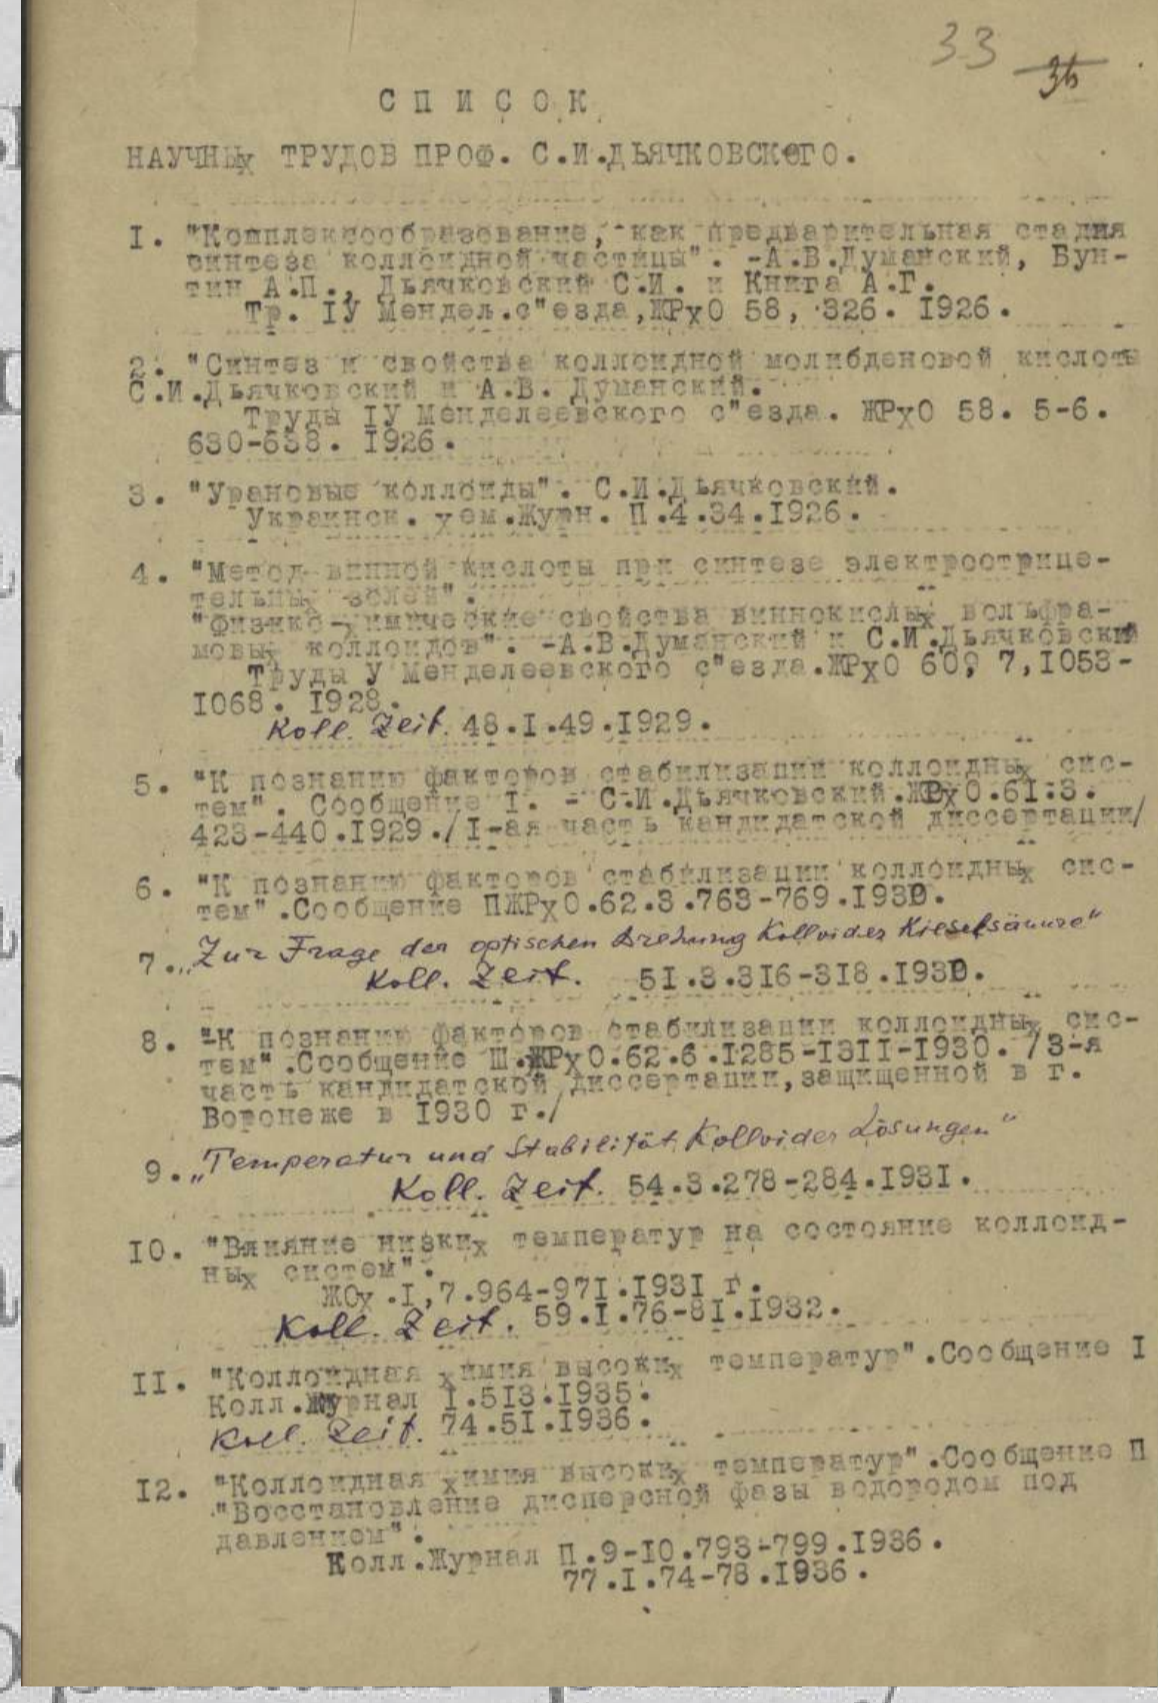 33
36
С П И С О К
НАУЧНЫХ ТРУДОВ ПРОФ. С.И.ДЬЯЧКОВСКОГО.
I. "Комплексообразование, как предварительная стадия
синтеза коллоидной частицы". -А.В.Думанский, Бун-
тин А.П., Дьячковский С.И. и Книга А.Г.
Тр. IУ Мендел.с"езда,ЖРхО 58, 326. I926.
2. "Синтез и свойства коллоидной молибденовой кислоты
С.И.Дьячковский и А.В. Думанский.
Труды IУ Менделеевского с"езда. ЖРхО 58. 5-6.
630-638. I926.
3. "Урановые коллоиды". С.И.Дьячковский.
Украинск. хем.Журн. П.4.34.I926.
4. "Метод винной кислоты при синтезе электроотрице-
тельных золей".
"Физико-химические свойства виннокислых вольфра-
мовых коллоидов". -А.В.Думанский и С.И.Дьячковский
Труды У Менделеевского с"езда.ЖРхО 60, 7,I053-
I068. I928.
Koll. Zeit. 48.I.49.I929.
5. "К познанию факторов стабилизации коллоидных сис-
тем". Сообщение I. - С.И.Дьячковский.ЖРхО.6I.3.
423-440.I929./I-ая часть кандидатской диссертации/
6. "К познанию факторов стабилизации коллоидных сис-
тем".Сообщение ПЖРхО.62.3.763-769.I930.
7. „Zur Frage der optischen Drehung Kolloider Kieselsäure"
Koll. Zeit. 5I.3.3I6-3I8.I930.
8. "К познанию факторов стабилизации коллоидных сис-
тем".Сообщение Ш.ЖРхО.62.6.I285-I3II-I930. /3-я
часть кандидатской диссертации,защищенной в г.
Воронеже в I930 г./
9. „Temperatur und Stabilität Kolloider Lösungen"
Koll. Zeit. 54.3.278-284.I93I.
I0. "Влияние низких температур на состояние коллоид-
ных систем".
ЖОх.I,7.964-97I.I93I г.
Koll. Zeit. 59.I.76-8I.I932.
II. "Коллоидная химия высоких температур".Сообщение I
Колл.Журнал I.5I3.I935.
Koll. Zeit. 74.5I.I936.
I2. "Коллоидная химия высоких температур".Сообщение П
"Восстановление дисперсной фазы водородом под
давлением".
Колл.Журнал П.9-I0.793-799.I936.
77.I.74-78.I936.